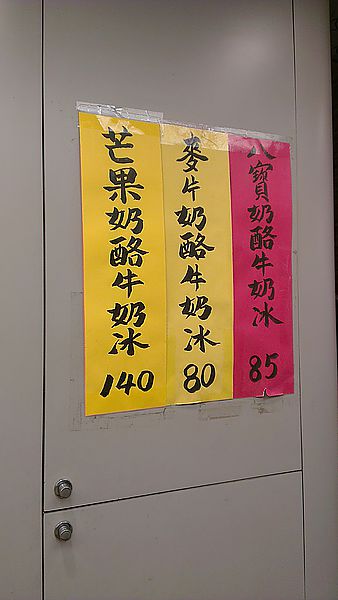 八寶奶酪牛奶冰 85
麥片奶酪牛奶冰 80
芒果奶酪牛奶冰 140